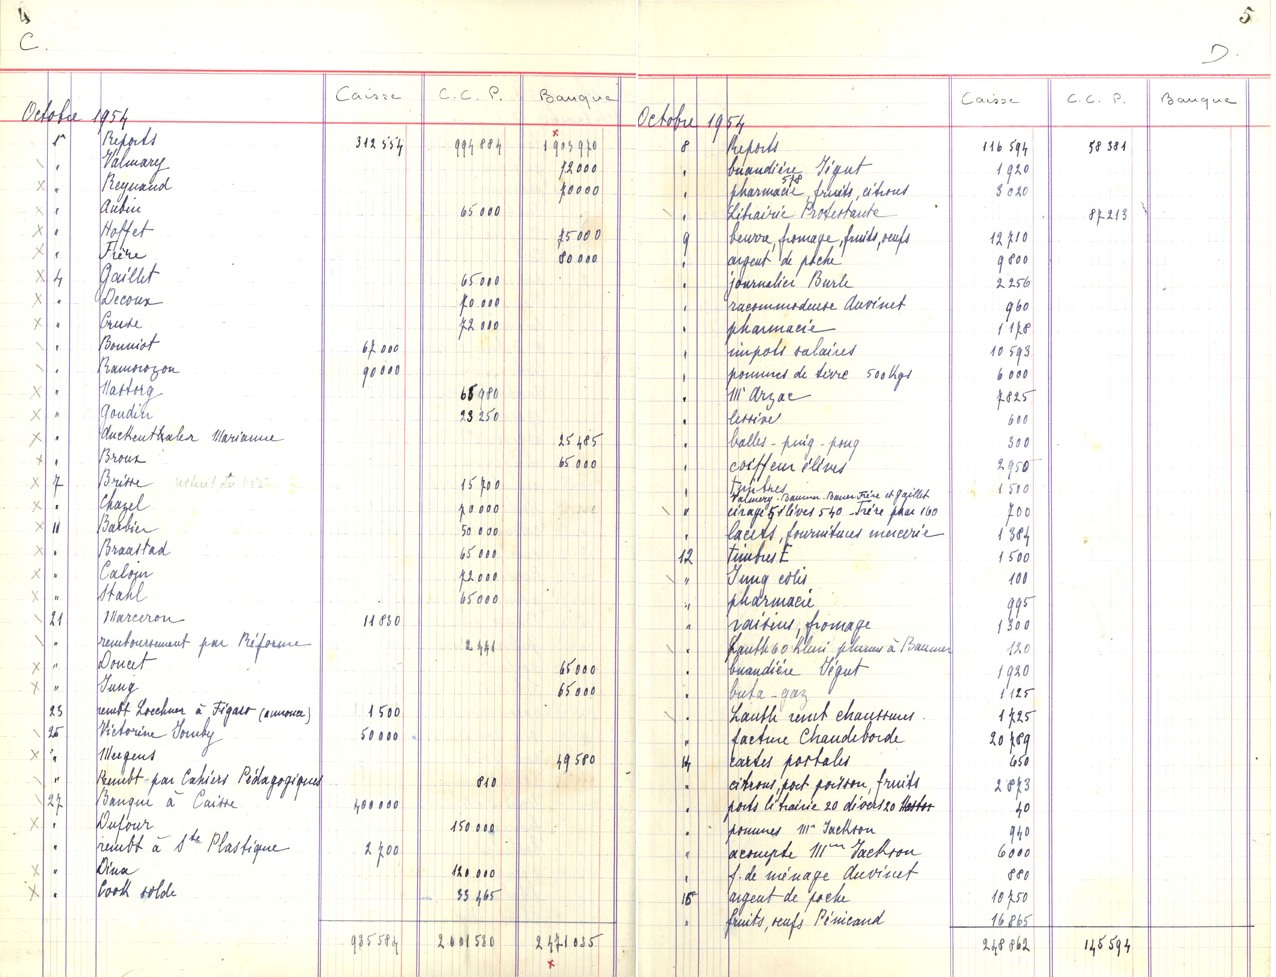 4
C.
Caisse C.C.P. Banque
Octobre 1954
5 Reports 312554 994884 1905970
" Valmary 72000
" Reynaud 70000
" Aubin 65000
" Hoffet 75000
" Frère 80000
4 Gaillet 65000
" Decoux 70000
" Cruse 72000
" Bonniot 67000
" Ramorozon 90000
" Hattorg 980
" Goudin 23250
" Auckenthaler Marianne 25485
" Broux 65000
7 Brisse 15700
" Chazel 70000
11 Barbier 50000
" Braastad 65000
" Calojn 72000
" Stahl 65000
21 Marceron 11830
" remboursement par Réforme 2441
" Doucet 65000
" Jung 65000
23 rembt Loechner à Figaro (annonce) 1500
25 Victorine Jomby 50000
" Mergens 49580
" Rembt par Cahiers Pédagogiques 810
27 Banque à Caisse 400000
" Dufour 150000
" rembt à Sté Plastique 2700
" Dina 120000
" Cook solde 33465
935584 2601530 2471035
5
D.
Caisse C.C.P. Banque
Octobre 1954
8 Reports 116594 58381
" buandière Ségut 1920
" pharmacie 578, fruits, citrons 3020
" Librairie Protestante 87213
9 beurre, fromage, fruits, oeufs 12710
" argent de poche 9800
" journalier Burle 2256
" racommodeuse Auvinet 960
" pharmacie 1178
" impots salaires 10593
" pommes de terre 500 Kgs 6000
" Mr Arzac 7825
" lessive 600
" balles - ping - pong 300
" coiffeur élèves 2950
" timbres 1500
Valmary - Baumer - Frère et Gaillet
" cirage 51 élèves 540 - Frère phar 160 700
" lacets, fournitures mercerie 1384
12 timbres E 1500
" Jung colis 100
" pharmacie 995
" raisins, fromage 1300
" Lauth 60 plumes à Baumer 120
" buandière Ségut 1920
" buta-gaz 1125
" Lauth remt chaussures 1725
" facture Chaudeborde 20789
14 cartes postales 650
" citrons, port poisson, fruits 2873
" ports librairie 20 divers 20 40
" pommes Mr Jackson 940
" acompte Mme Jackson 6000
" f. de ménage Auvinet 880
15 argent de poche 10750
" fruits, oeufs Pénicaud 16865
248862 145594